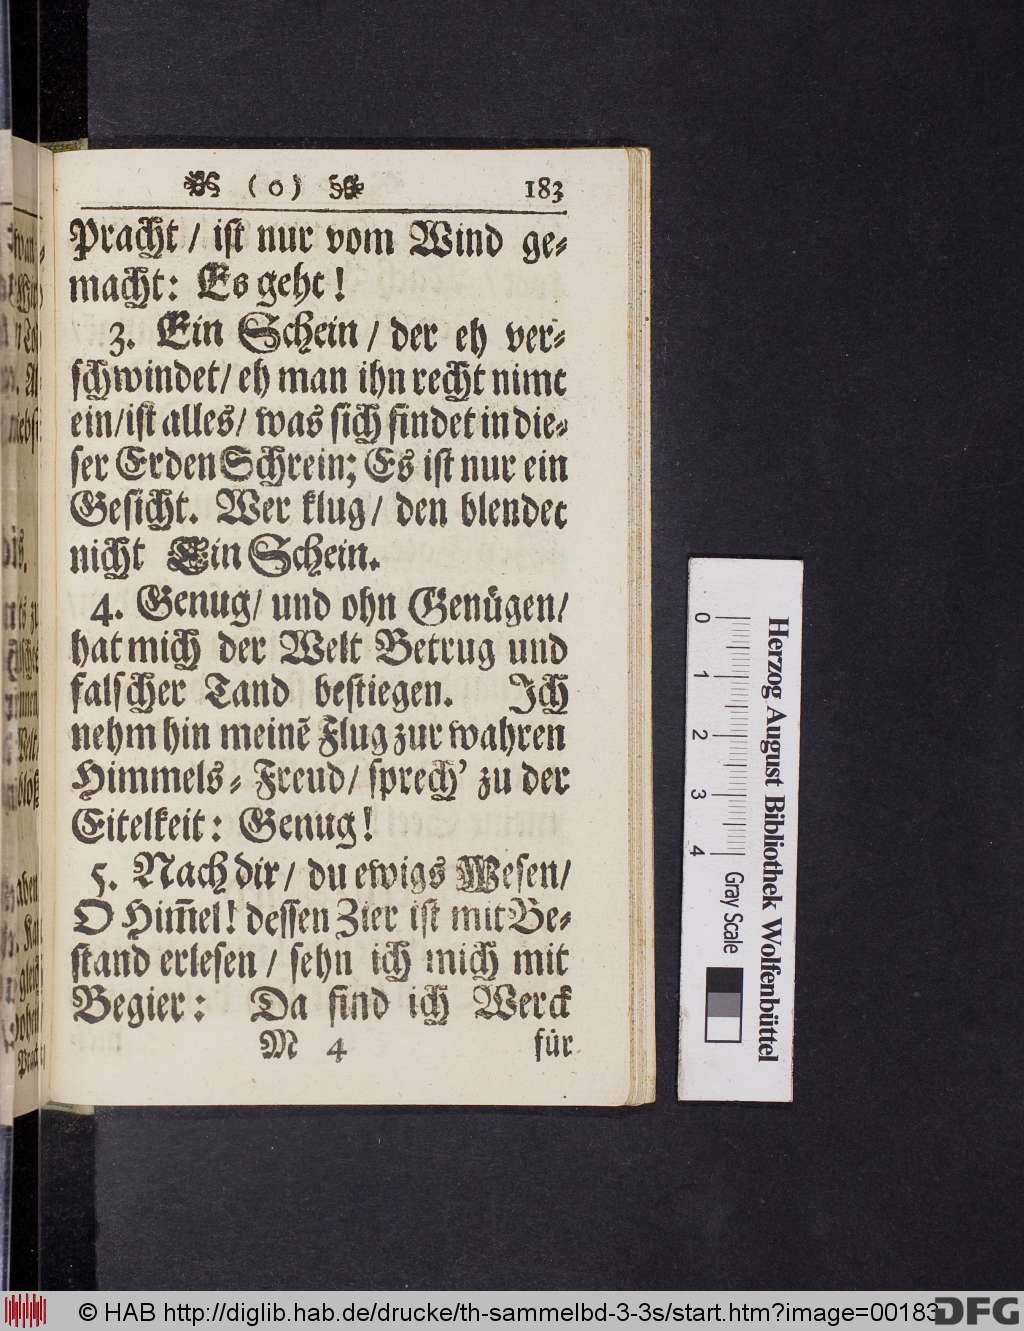 ( o ) 183
Pracht / ist nur vom Wind ge-
macht: Es geht!
3. Ein Schein / der eh ver-
schwindet / eh man ihn recht nimt
ein / ist alles / was sich findet in die-
ser Erden Schrein; Es ist nur ein
Gesicht. Wer klug / den blendet
nicht Ein Schein.
4. Genug / und ohn Genügen /
hat mich der Welt Betrug und
falscher Tand bestiegen. Ich
nehm hin meinē Flug zur wahren
Himmels-Freud / sprech' zu der
Eitelkeit: Genug!
5. Nach dir / du ewigs Wesen /
O Him̃el! dessen Zier ist mit Be-
stand erlesen / sehn ich mich mit
Begier: Da find ich Werck
M 4 für
Herzog August Bibliothek Wolfenbüttel
0 1 2 3 4 Gray Scale
© HAB http://diglib.hab.de/drucke/th-sammelbd-3-3s/start.htm?image=00183
DFG